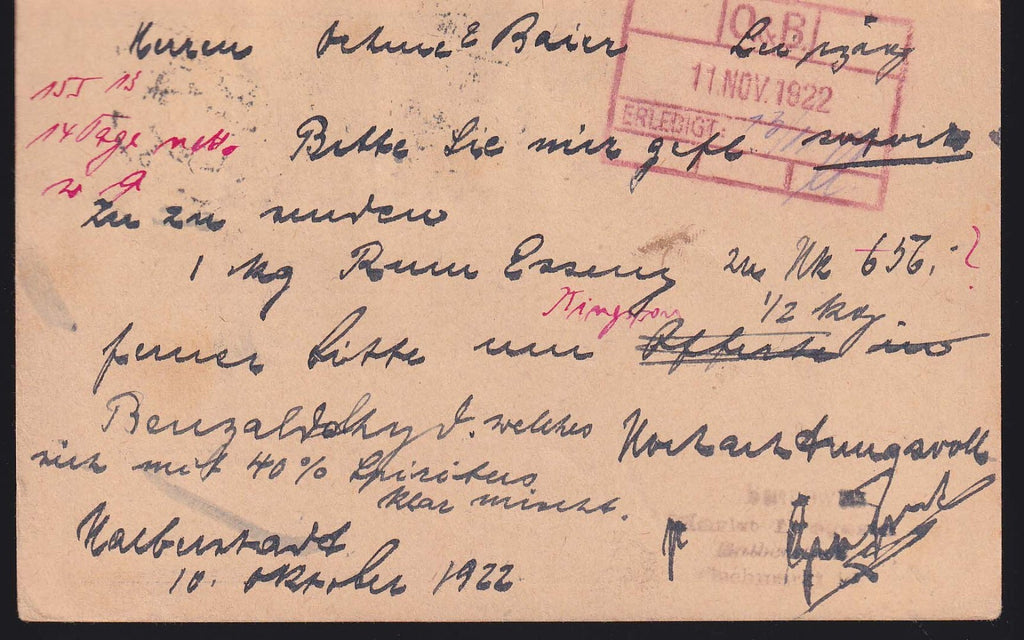 Herren Oehme & Baier Leipzig
O&B
11. NOV. 1922
ERLEDIGT:
14 Tage netto
Bitte Sie mir gefl sofort
zu zu senden
1 kg Rum Essenz zu Mk 656.- ?
Kingston
1/2 kg.
ferner bitte um Offerte in
Benzaldehyd. welches
sich mit 40% Spiritus
klar mischt.
Hochachtungsvoll
Halberstadt
10. Oktober 1922